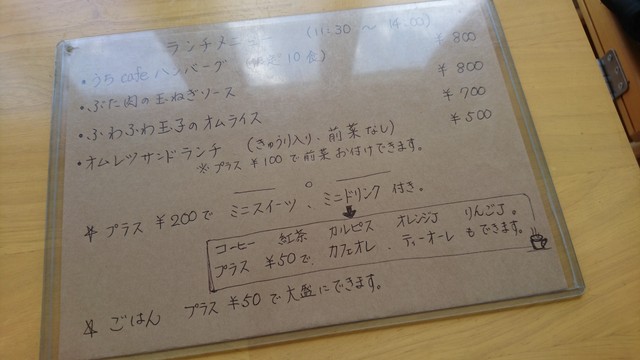 ランチメニュー (11:30 〜 14:00)
・うちcafeハンバーグ (限定10食) ¥800
・ぶた肉の玉ねぎソース ¥800
・ふわふわ玉子のオムライス ¥700
・オムレツサンドランチ (きゅうり入り、前菜なし) ¥500
※プラス ¥100で前菜お付けできます。
☆ プラス ¥200で ミニスイーツ、ミニドリンク 付き。
コーヒー 紅茶 カルピス オレンジJ りんごJ。
プラス ¥50で、カフェオレ、ティーオーレ もできます。
☆ ごはん プラス ¥50で大盛にできます。